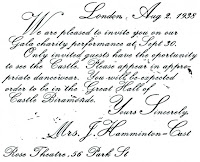 London, Aug 2, 1938
We are pleased to invite you on our
Gala charity performance at Sept 30.
Only invited guests have the oportunity
to see the Castle. Please appear in appro-
priate dancewear. You will be expected
order to be in the Great Hall of
Castle Biramonde.
Yours Sincerely,
Mrs. J. Hamminton-East
Rose Theatre, 56 Park St.